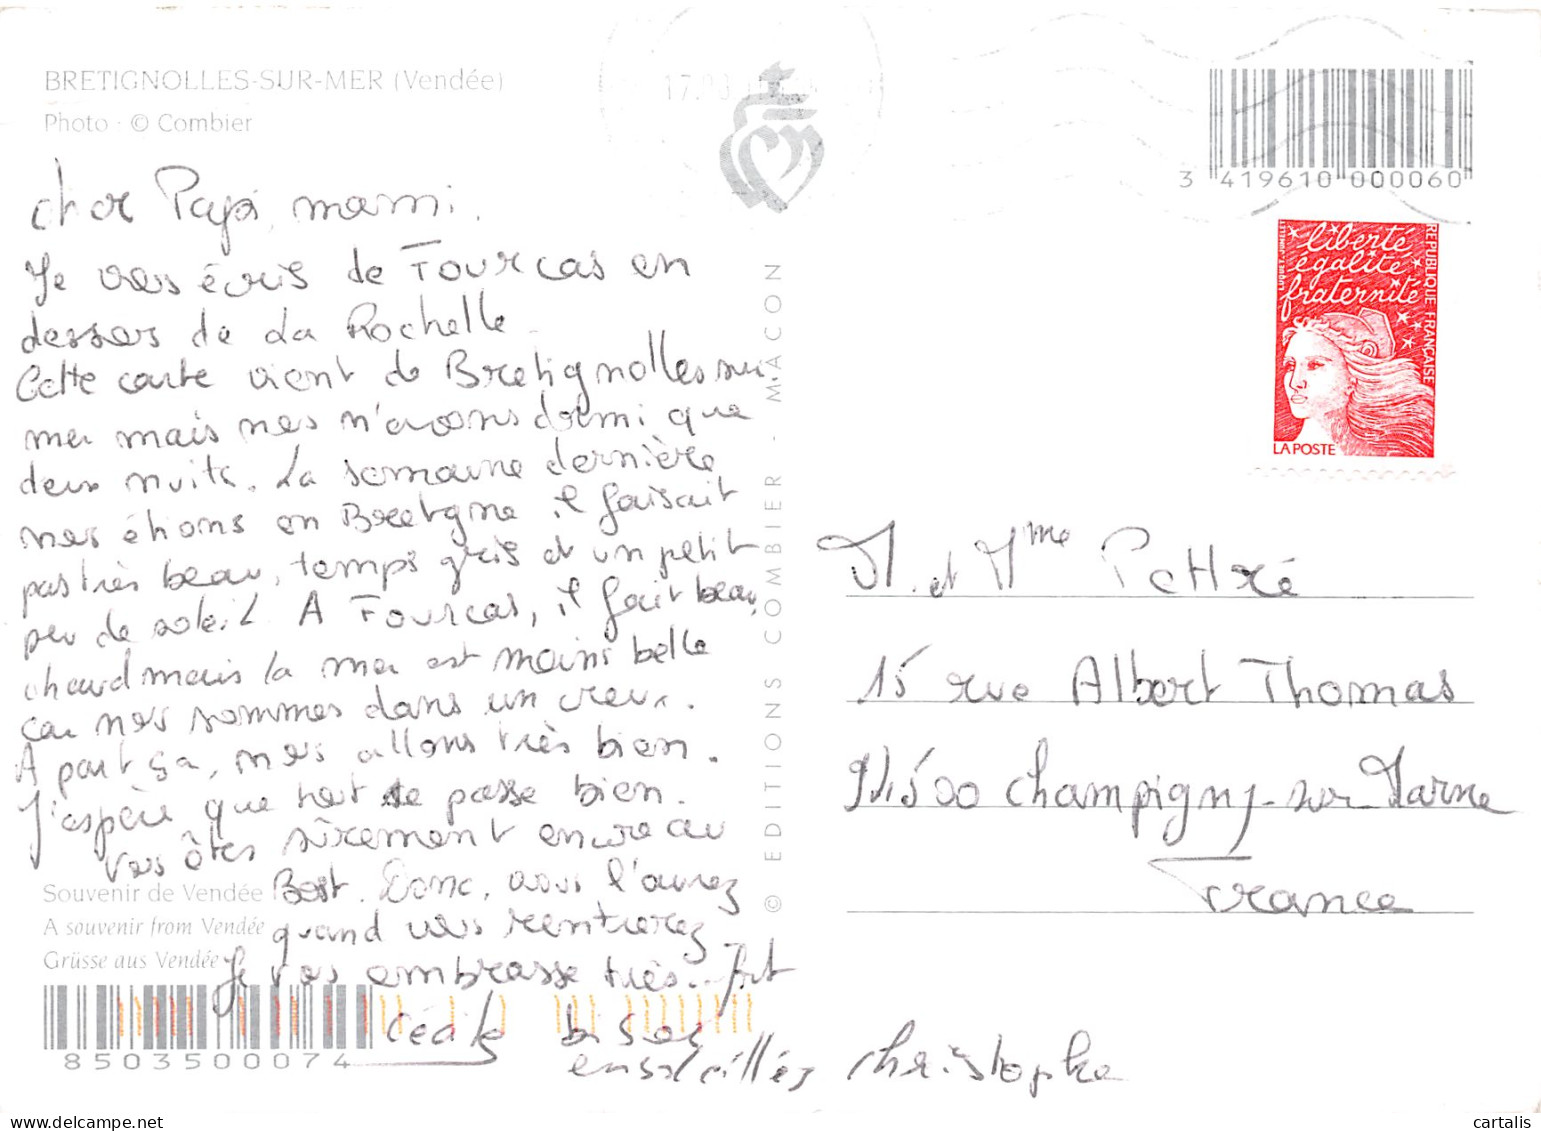 BRETIGNOLLES-SUR-MER (Vendée)
Photo · © Combier
cher Papi, mami.
Je vous écris de Fourcas en
dessous de La Rochelle.
Cette carte vient de Bretignolles sur
mer mais nous n'avons dormi que
deux nuits. La semaine dernière
nous étions en Bretagne il faisait
pas très beau, temps gris et un petit
peu de soleil. A Fourcas, il fait beau,
chaud mais la mer est moins belle
car nous sommes dans un creux.
A part ça, nous allons très bien.
J'espère que tout se passe bien.
Vous êtes sûrement encore au
Bost. Donc, vous l'aurez
quand vous rentrerez
Je vous embrasse très.. fort
Cécile bisous
ensoleillés Christophe
Souvenir de Vendée
A souvenir from Vendée
Grüsse aus Vendée
8503500074
© EDITIONS COMBIER - MACON
17.08
3 419610 000060
liberté
égalité
fraternité
RÉPUBLIQUE FRANÇAISE
LA POSTE
M. et Mme Pettré
15 rue Albert Thomas
94500 Champigny-sur-Marne
France
cartalis